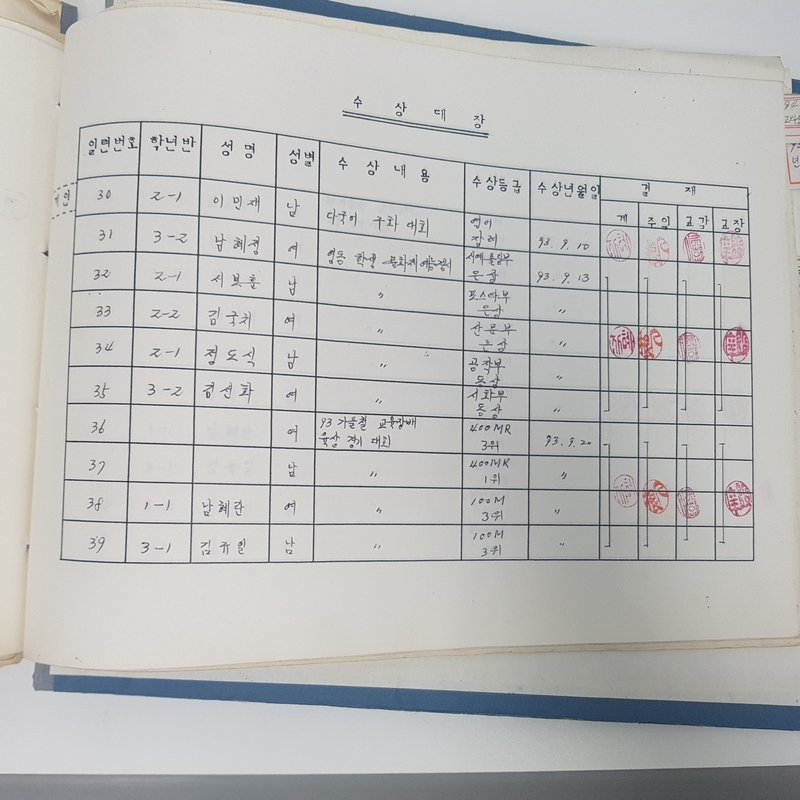 수상대장
일련번호 학년반 성명 성별 수상내용 수상등급 수상년월일 결재
계 주임 교감 교장
30 2-1 이민재 남 다국어 구화 대회 영어 장려 93. 9. 10
31 3-2 남혜정 여 학생 서예 은상 93. 9. 13
32 2-1 남 〃 포스타부 은상 〃
33 2-2 여 〃 산문부 은상 〃
34 2-1 정도식 남 〃 공작부 동상 〃
35 3-2 김선화 여 〃 서화부 동상 〃
36 여 93 가을철 교육장배 육상 경기 대회 400MR 3위 93. 9. 20
37 남 〃 400MR 1위 〃
38 1-1 남혜란 여 〃 100M 3위 〃
39 3-1 김규일 남 〃 100M 3위 〃